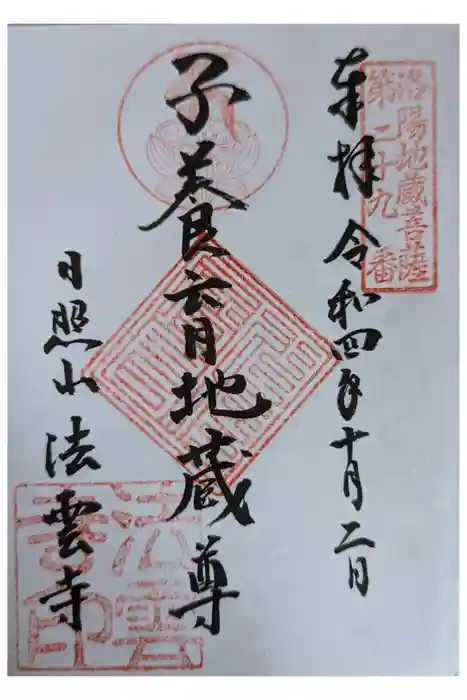 洛陽地蔵菩薩
第二十九番
奉拝 令和四年十月二日
子養六月地蔵尊
日照山 法雲寺
法雲
寺印